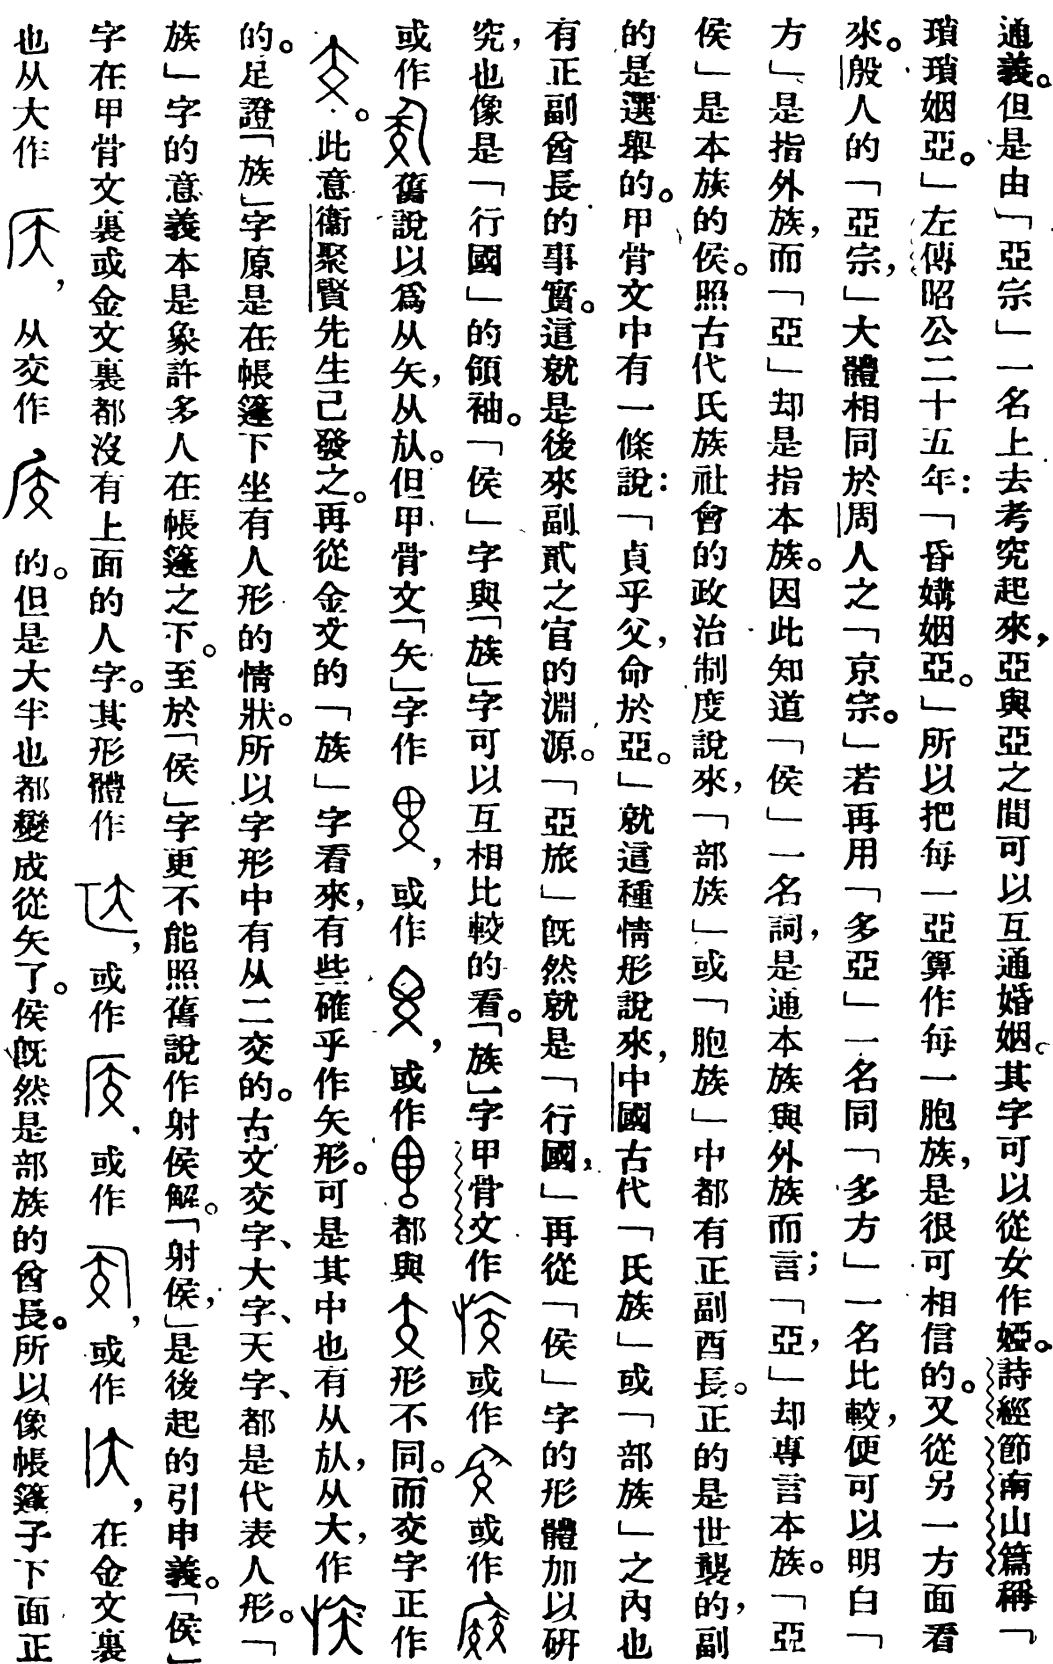 通義。但是由「亞宗」一名上去考究起來，亞與亞之間可以互通婚姻。其字可以從女作婭。詩經節南山篇稱「
瑣瑣姻亞。」左傳昭公二十五年：「昏媾姻亞。」所以把每一亞算作每一胞族，是很可相信的。又從另一方面看
來。殷人的「亞宗，」大體相同於周人之「京宗。」若再用「多亞」一名同「多方」一名比較，便可以明白「
方」是指外族，而「亞」却是指本族。因此知道「侯」一名詞，是通本族與外族而言；「亞，」却專言本族。「亞
侯」是本族的侯。照古代氏族社會的政治制度說來，「部族」或「胞族」中都有正副酉長。正的是世襲的，副
的是選舉的。甲骨文中有一條說：「貞乎父，命於亞。」就這種情形說來，中國古代「氏族」或「部族」之內也
有正副酋長的事實。這就是後來副貳之官的淵源。「亞旅」既然就是「行國，」再從「侯」字的形體加以研
究，也像是「行國」的領袖。「侯」字與「族」字可以互相比較的看。「族」字甲骨文作或作或作
或作舊說以爲从矢，从㫃。但甲骨文「矢」字作，或作，或作都與形不同。而交字正作
。此意衞聚賢先生已發之。再從金文的「族」字看來，有些確乎作矢形。可是其中也有从㫃，从大，作
的。足證「族」字原是在帳篷下坐有人形的情狀。所以字形中有从二交的。古文交字、大字、天字、都是代表人形。「
族」字的意義本是象許多人在帳篷之下。至於「侯」字更不能照舊說作射侯解。「射侯，」是後起的引申義。「侯」
字在甲骨文裏或金文裏都沒有上面的人字。其形體作，或作，或作，或作，在金文裏
也从大作，从交作的。但是大半也都變成從矢了。侯既然是部族的酋長。所以像帳篷子下面正